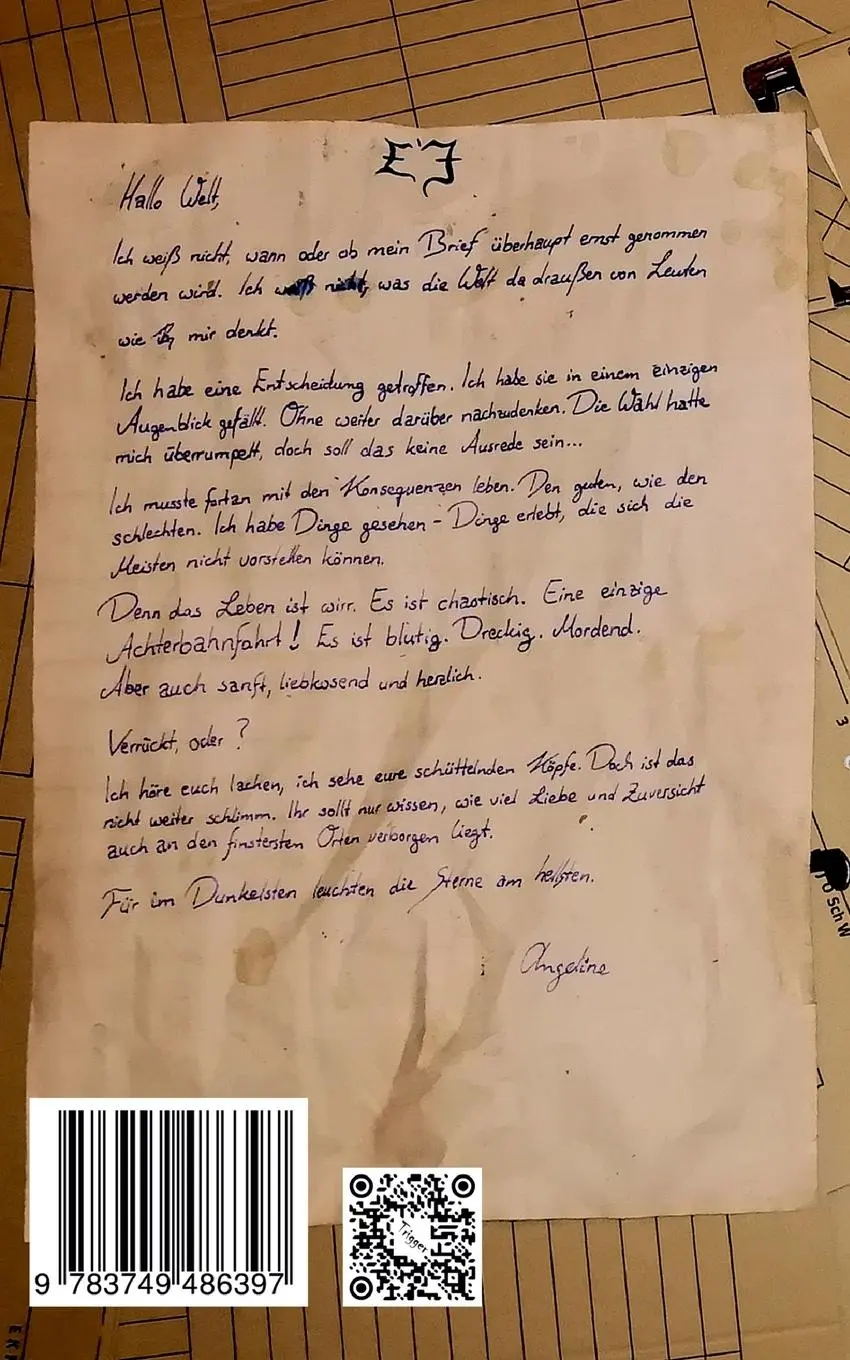 Hallo Welt,
Ich weiß nicht, wann oder ob mein Brief überhaupt ernst genommen
werden wird. Ich weiß nicht, was die Welt da draußen von Leuten
wie mir denkt.
Ich habe eine Entscheidung getroffen. Ich habe sie in einem einzigen
Augenblick gefällt. Ohne weiter darüber nachzudenken. Die Wahl hatte
mich überrumpelt, doch soll das keine Ausrede sein...
Ich musste fortan mit den Konsequenzen leben. Den guten, wie den
schlechten. Ich habe Dinge gesehen - Dinge erlebt, die sich die
Meisten nicht vorstellen können.
Denn das Leben ist wirr. Es ist chaotisch. Eine einzige
Achterbahnfahrt! Es ist blutig. Dreckig. Mordend.
Aber auch sanft, liebkosend und herzlich.
Verrückt, oder?
Ich höre euch lachen, ich sehe eure schüttelnden Köpfe. Doch ist das
nicht weiter schlimm. Ihr sollt nur wissen, wie viel Liebe und Zuversicht
auch an den finstersten Orten verborgen liegt.
Für im Dunkelsten leuchten die Sterne am hellsten.
Angeline
3
Sch W
9 783749 486397
Trigger